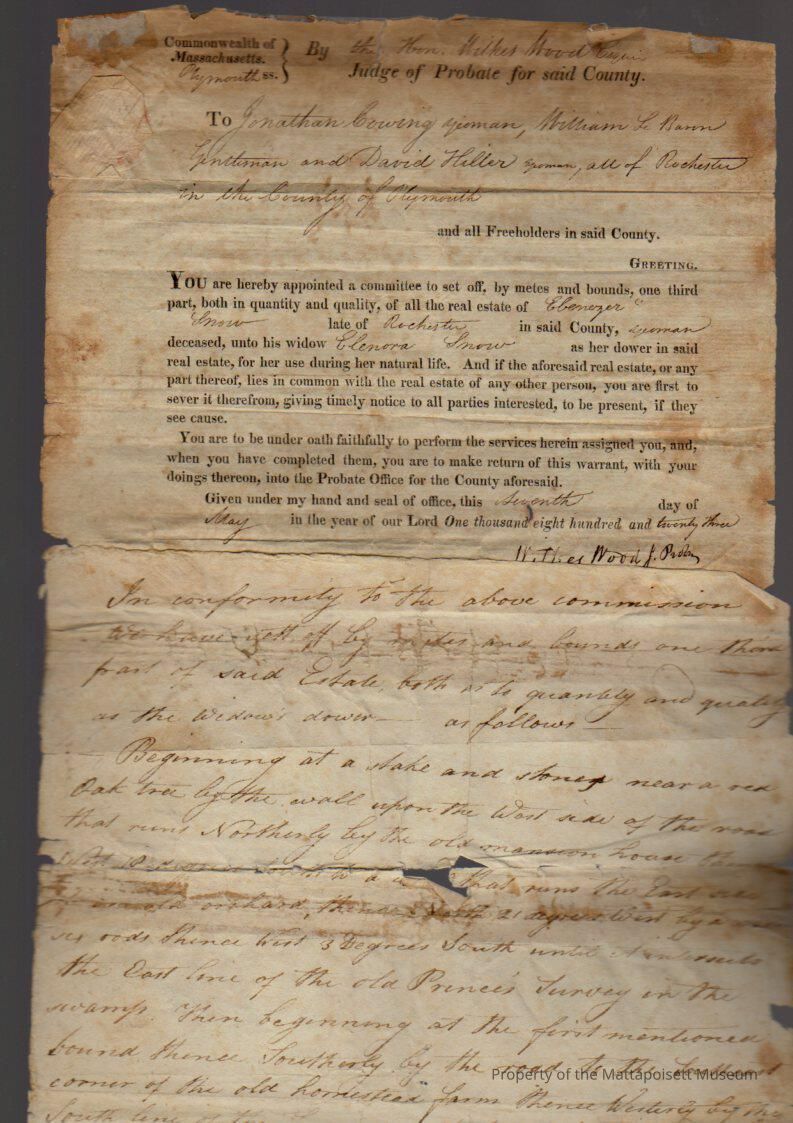 Commonwealth of Massachusetts. Plymouth ss. } By the Hon. Wilkes Wood Esquire
Judge of Probate for said County.
To Jonathan Cowing yeoman, William Le Baron
Gentleman and David Hiller yeoman, all of Rochester
in the County of Plymouth
and all Freeholders in said County.
GREETING.
YOU are hereby appointed a committee to set off, by metes and bounds, one third
part, both in quantity and quality, of all the real estate of Ebenezer
Snow late of Rochester in said County, yeoman
deceased, unto his widow Elenora Snow as her dower in said
real estate, for her use during her natural life. And if the aforesaid real estate, or any
part thereof, lies in common with the real estate of any other person, you are first to
sever it therefrom, giving timely notice to all parties interested, to be present, if they
see cause.
You are to be under oath faithfully to perform the services herein assigned you, and,
when you have completed them, you are to make return of this warrant, with your
doings thereon, into the Probate Office for the County aforesaid.
Given under my hand and seal of office, this seventh day of
May in the year of our Lord One thousand eight hundred and twenty three
Wilkes Wood J. Prob
In conformity to the above commission
We have sett off by metes and bounds one third
part of said Estate, both as to quantity and quality
as the Widow's dower as follows
Beginning at a stake and stones near a red
Oak tree by the wall upon the West side of the road
that runs Northerly by the old mansion house the
West to a that runs the East side
old orchard, thence North 21 degrees West by a
six rods thence West 3 Degrees South until it intersects
the East line of the old Prince's Survey in the
swamp. Then beginning at the first mentioned
bound thence Southerly by the road to the
corner of the old homestead farm thence Westerly by the
South line of
Property of the Mattapoisett Museum